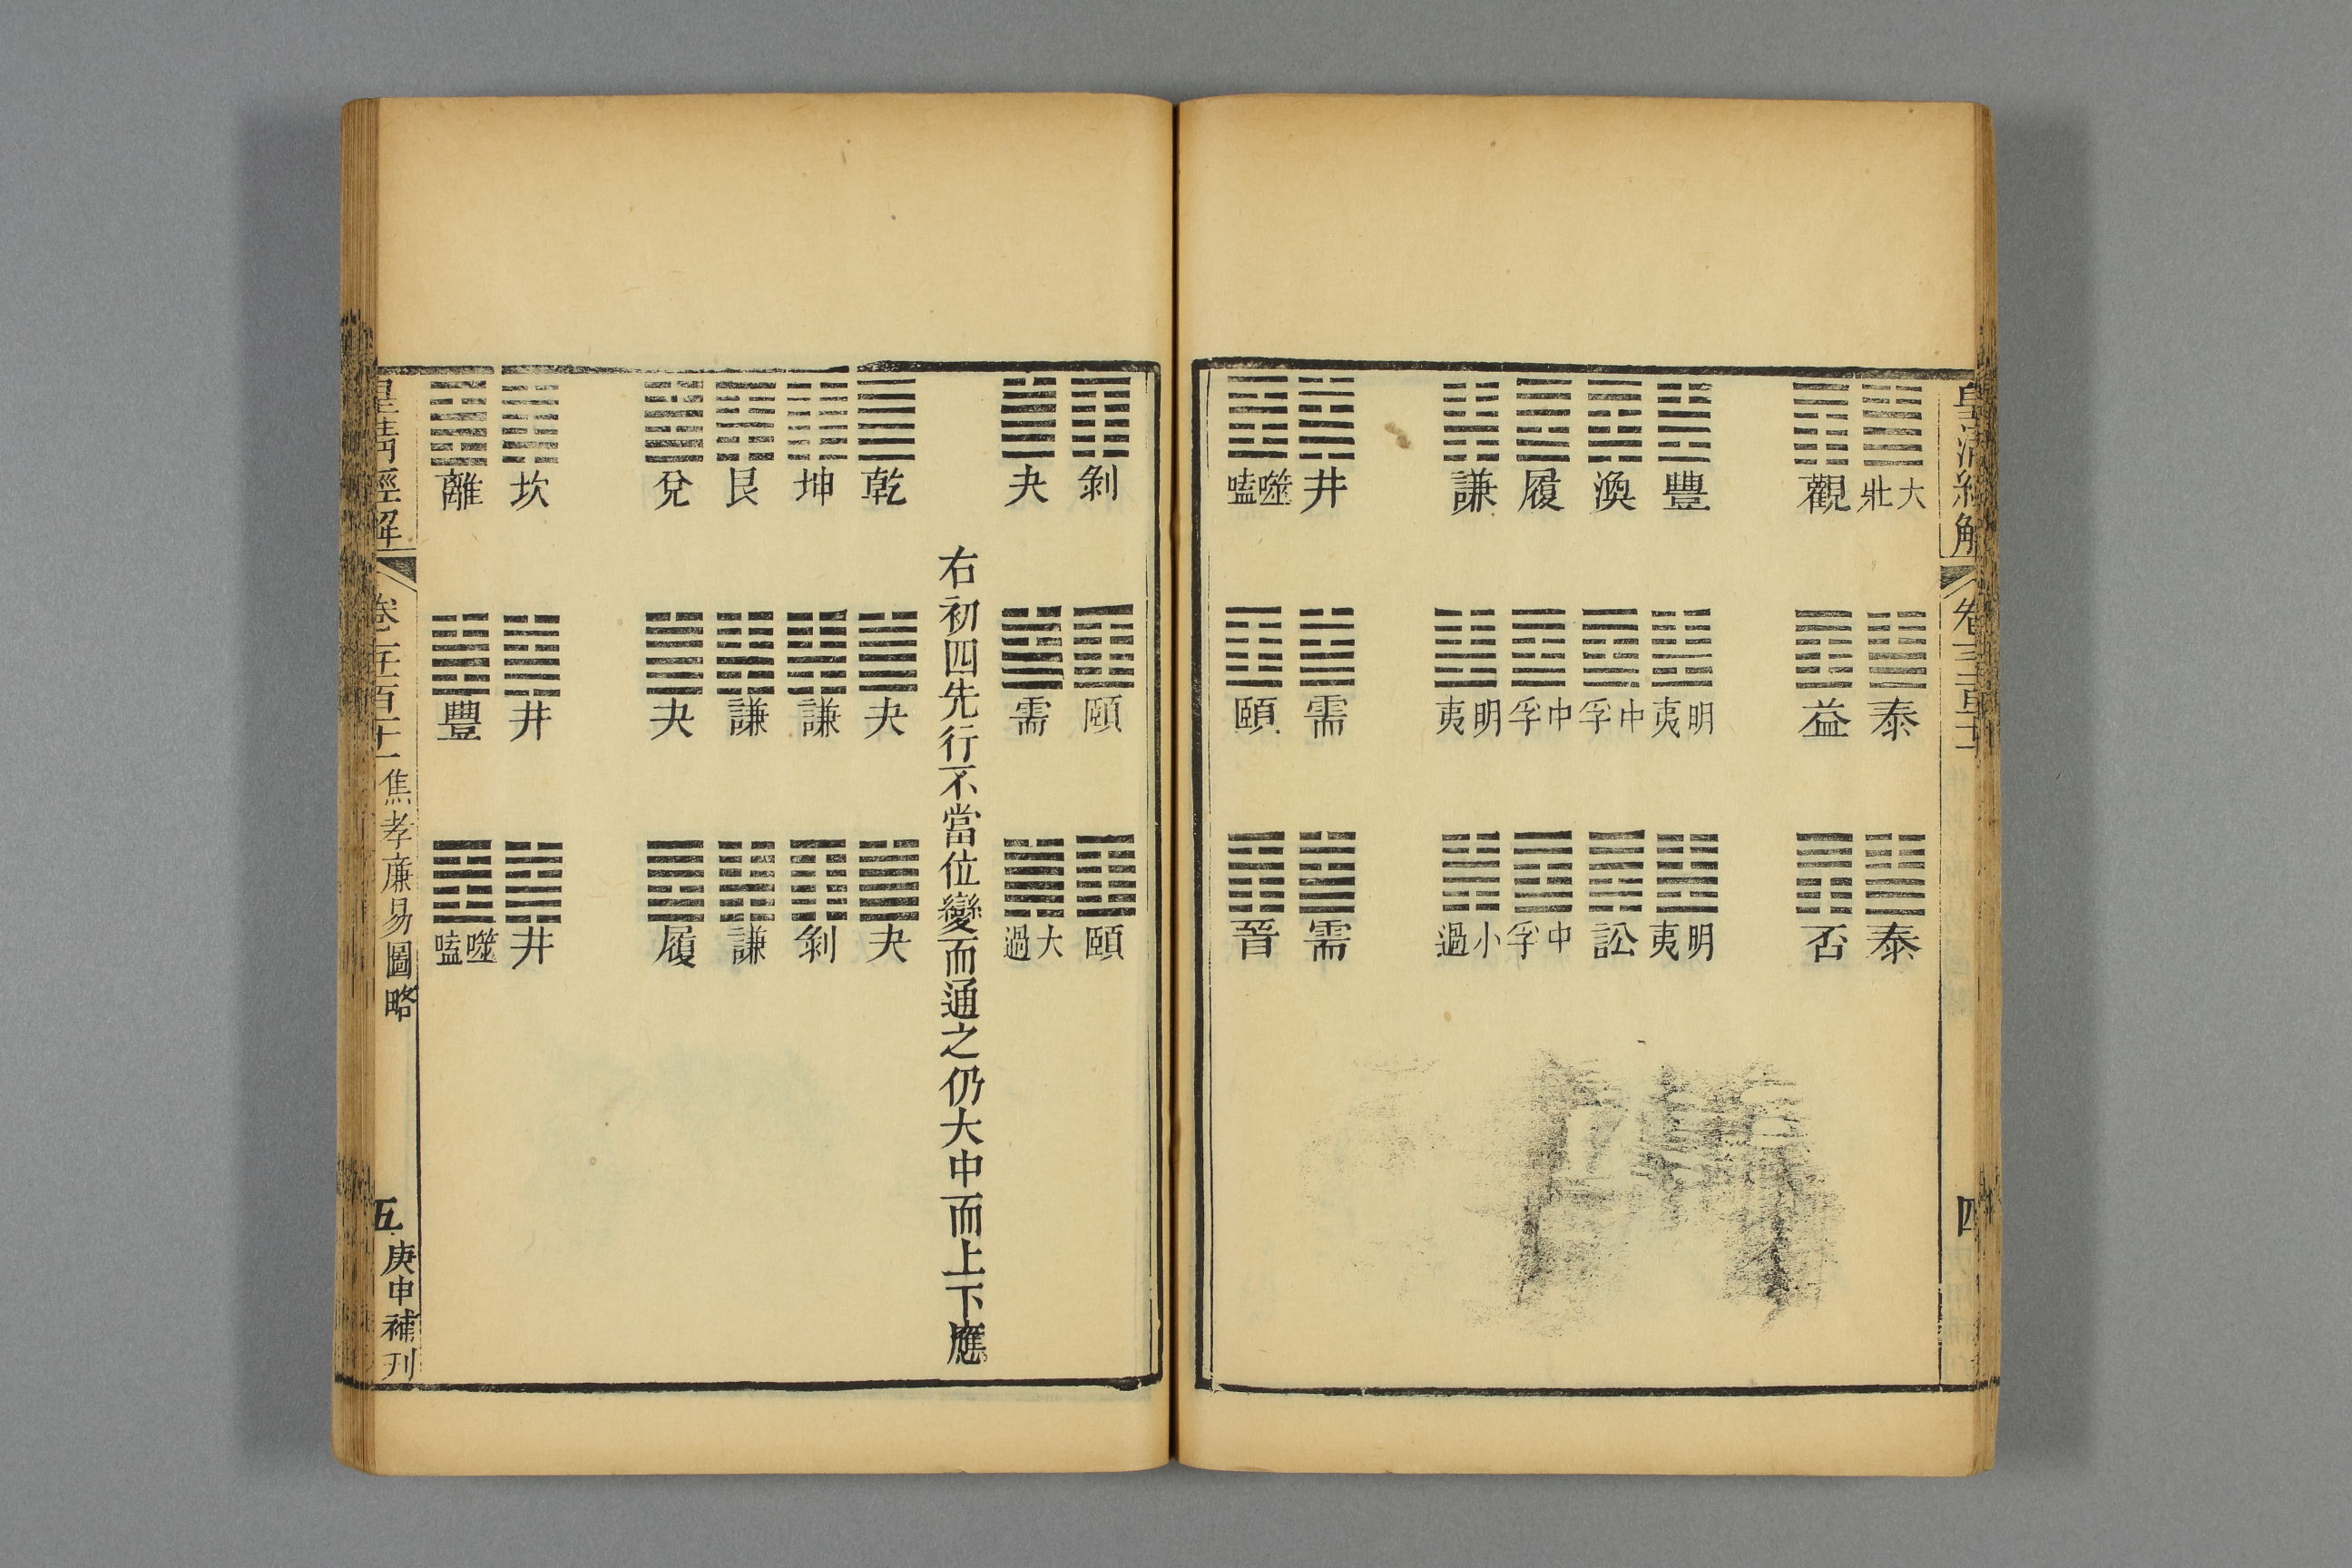 皇清經解
卷一千一百十一
四
大壯
觀
豐
渙
履
謙
井
噬嗑
泰
益
明夷
中孚
中孚
明夷
需
頤
泰
否
明夷
訟
中孚
小過
需
晉
剝
夬
頤
需
頤
大過
右初四先行不當位變而通之仍大中而上下應
乾
坤
艮
兌
坎
離
夬
謙
謙
夬
井
豐
夬
剝
謙
履
井
噬嗑
皇清經解
焦孝廉易圖略
五
庚申補刊